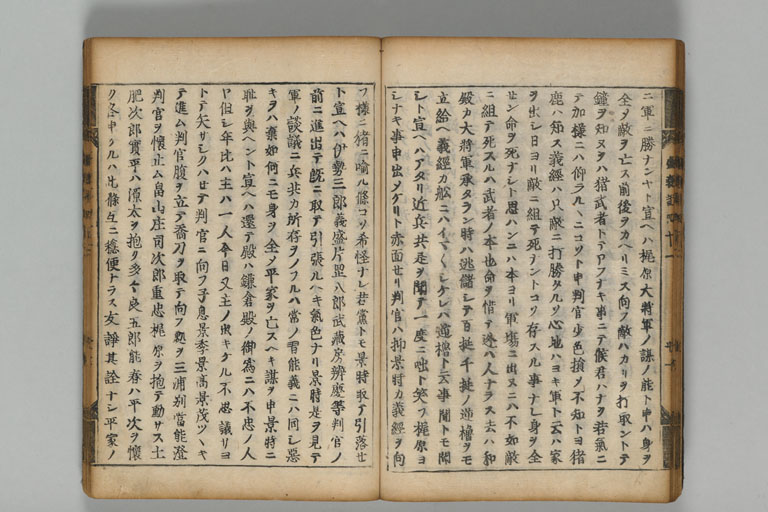 ニ軍ニ勝ナンヤト宣ヘハ梶原大将軍ノ謀ノ能ト申ハ身ヲ
全メ敵ヲ亡ス前後ヲカヘリミス向フ敵ハカリヲ打取ントテ
鐘ヲ知ヌヲハ猪武者トテアフナキ事ニテ候君ハナヲ若氣ニ
テ加様ニハ仰ラルヽニコソト申判官少色損メ不知トヨ猪
鹿ハ知ス義經ハ只敵ニ打勝タルソ心地ハヨキ軍ト云ハ家
ヲ出シ日ヨリ敵ニ組テ死ナントコソ存スル事ナレ身ヲ全
セン命ヲ死ナシト思ハンニハ本ヨリ軍場ニ出ヌニハ不如敵
ニ組テ死スルハ武者ノ本也命ヲ惜テ逃ハ人ナラス去ハ和
殿カ大将軍承タラン時ハ逃儲シテ百挺千挺ノ逆櫓ヲモ
立給ヘ義經カ舩ニハイマヽシケレハ逆櫓ト云事聞トモ聞
シト宣ヘハアタリ近兵共是ヲ聞テ一度ニ咄ト笑フ梶原ヨ
シナキ事申出メケリト赤面セリ判官ハ抑景時カ義經ヲ向
フ様ニ猪ニ喩ル條コソ希怪ナレ若黨トモ景時取テ引落セ
ト宣ヘハ伊勢三郎義盛片岡八郎武蔵房辨慶等判官ノ
前ニ進出テ既ニ取テ引張ルヘキ氣色ナリ景時是ヲ見テ
軍ノ談議ニ兵共カ所存ヲノフルハ常ノ習能義ニハ同シ惡
キヲハ棄如何ニモ身ヲ全メ平家ヲ亡スヘキ謀ヲ申景時ニ
耻ヲ與ヘント宣ヘハ還テ殿ハ鎌倉殿ノ御為ニハ不忠ノ人
ヤ但シ年比ハ主ハ一人今日又主ノ出キケル不思議サヨ
トテ矢サシクハセテ判官ニ向フ子息景季景高景茂ツヽキ
テ進ム判官腹ヲ立テ喬刀ヲ取テ向フ処ヲ三浦別當能澄
判官ヲ懐止ム畠山庄司次郎重忠梶原ヲ抱テ動サス土
肥次郎實平ハ源太ヲ抱ク多々良五郎能春ハ平次ヲ懐
ク各申クルハ此條互ニ穏便ナラス友諍其詮ナシ平家ノ